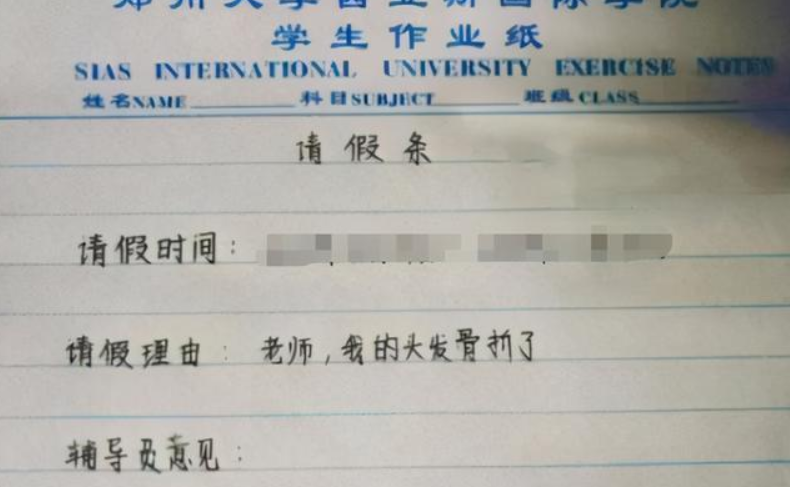 郑州大学西亚斯国际学院
学生作业纸
SIAS INTERNATIONAL UNIVERSITY EXERCISE NOTES
姓名NAME 科目SUBJECT 班级CLASS
请假条
请假时间：
请假理由：老师，我的头发骨折了
辅导员意见：